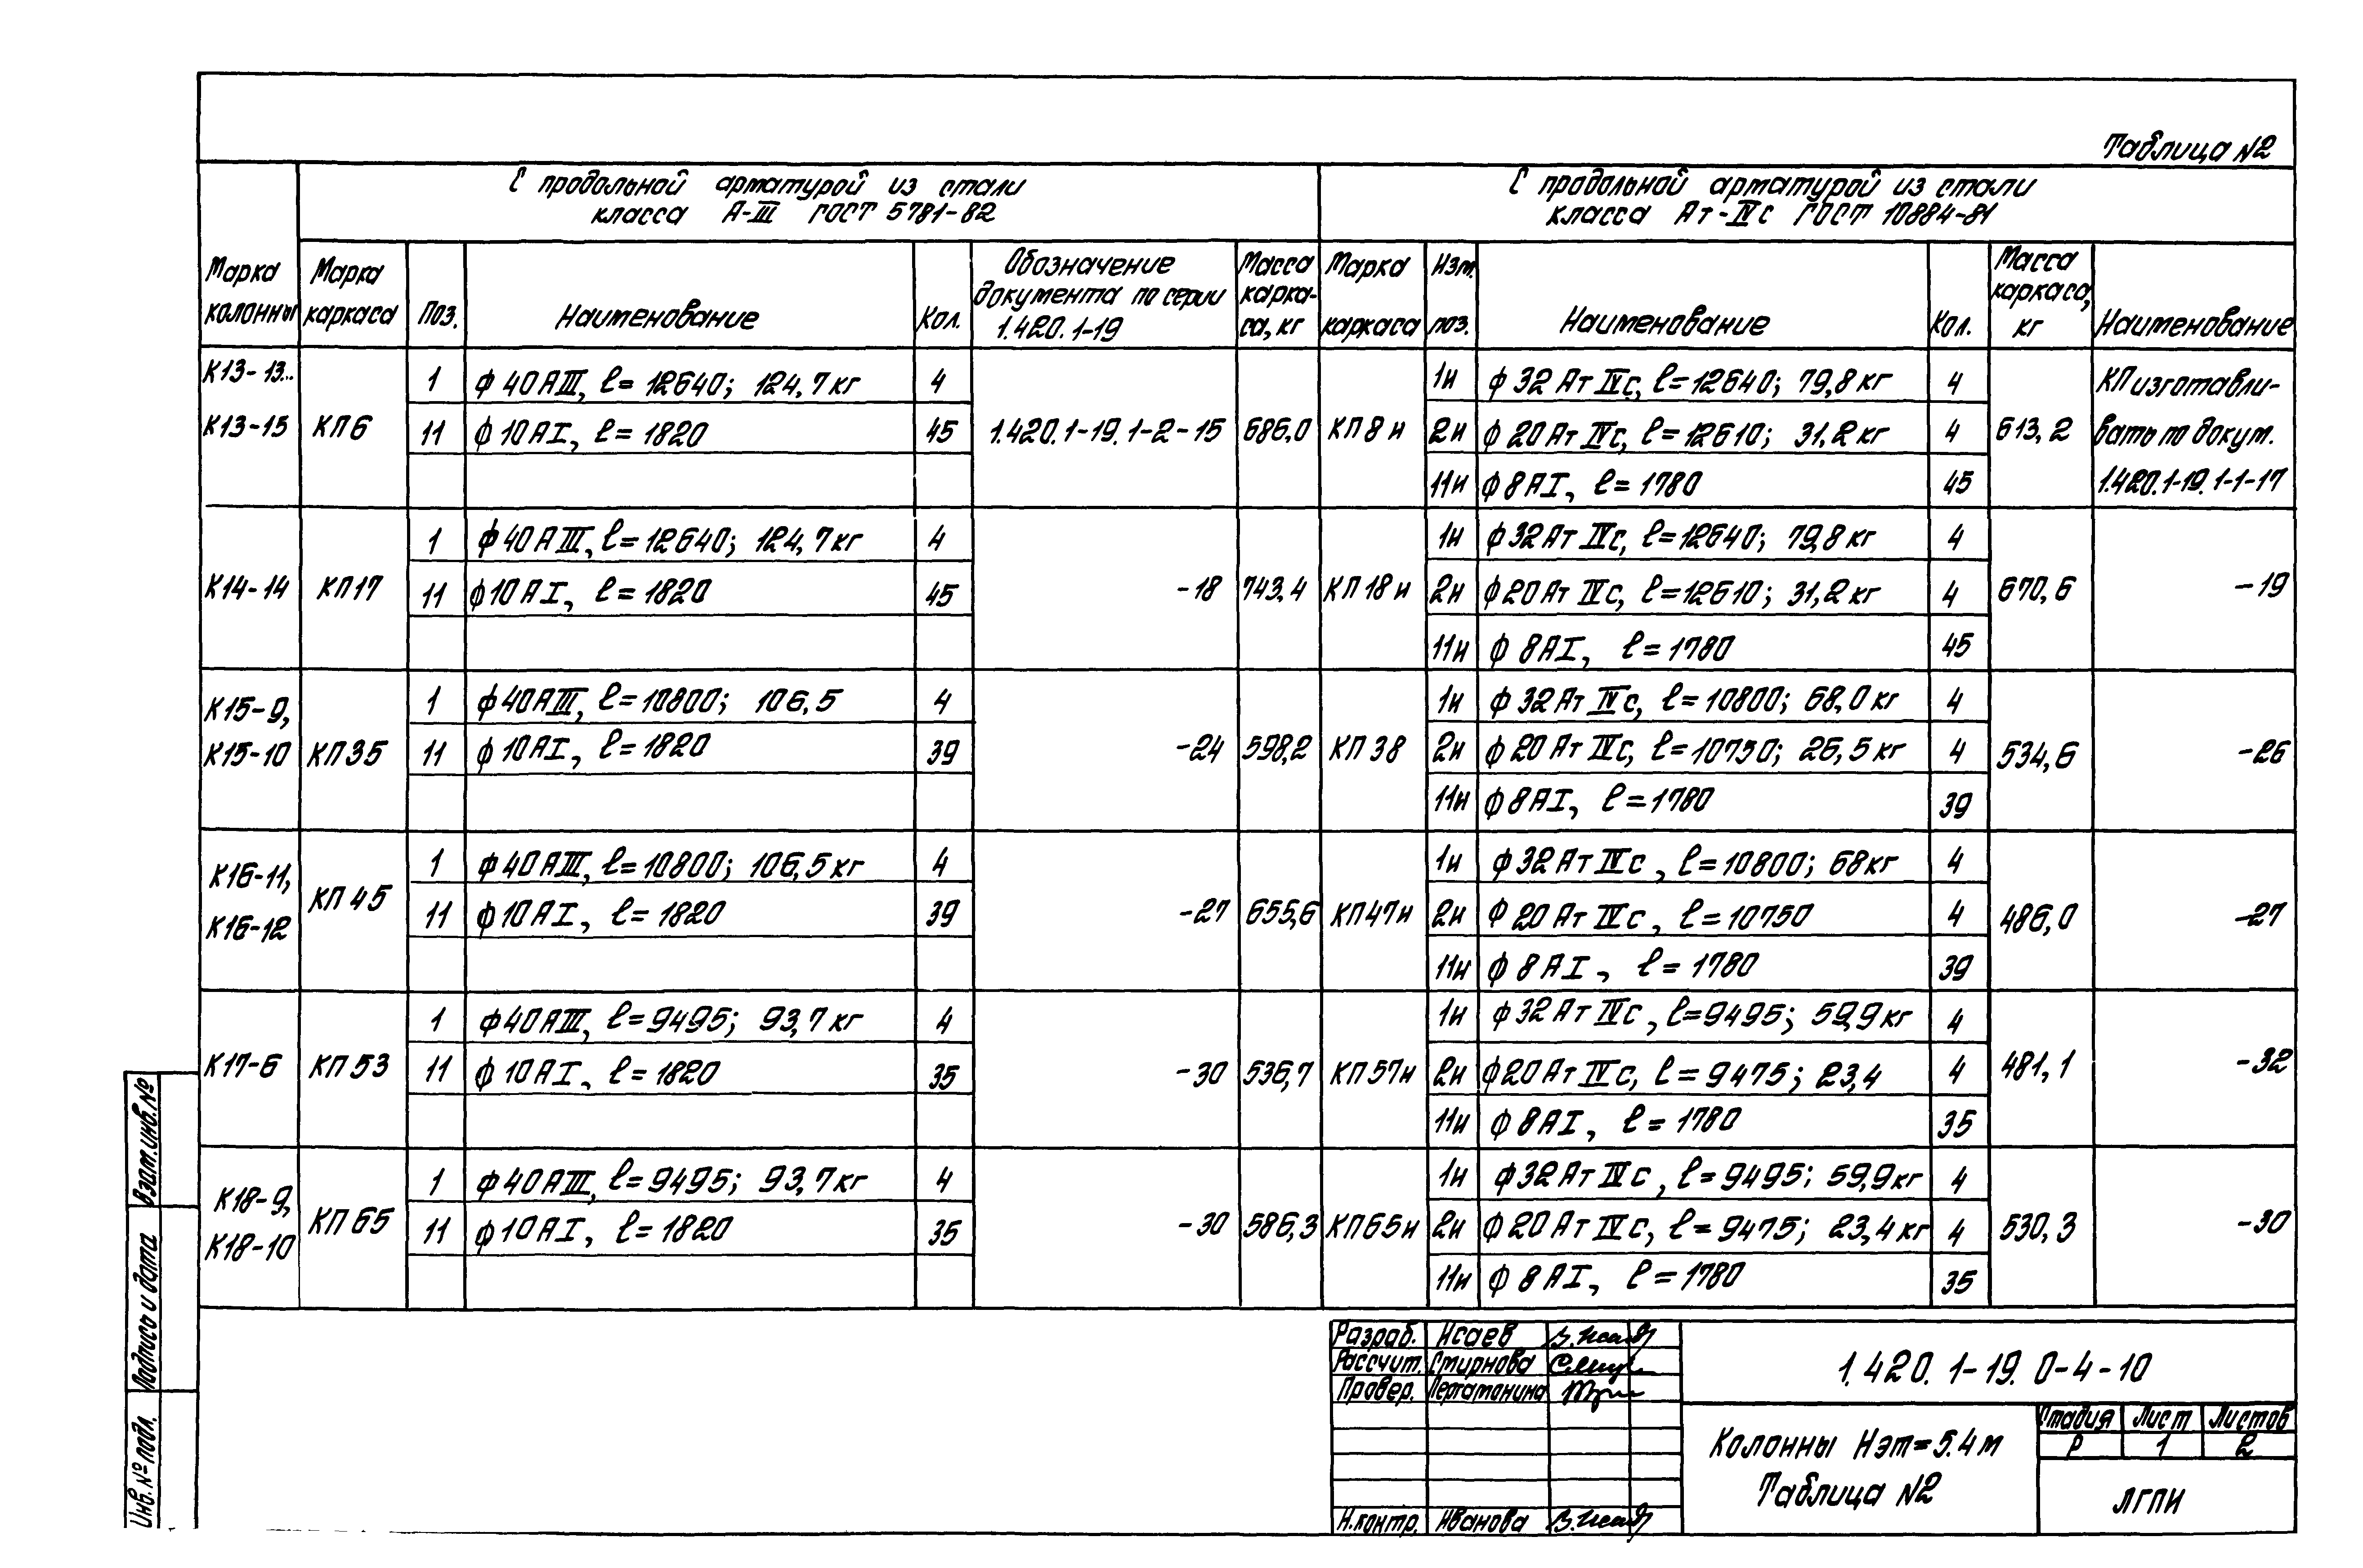 Таблица №2
С продольной арматурой из стали
класса А-III ГОСТ 5781-82
С продольной арматурой из стали
класса Ат-IVс ГОСТ 10884-81
Марка колонны
Марка каркаса
Поз.
Наименование
Кол.
Обозначение документа по серии 1.420.1-19
Масса карка-са, кг
Марка каркаса
Изм. поз.
Наименование
Кол.
Масса каркаса, кг
Наименование
К13-13...
К13-15
КП6
1 ф 40АIII, ℓ=12640; 124,7кг 4
11 ф10АI, ℓ=1820 45
1.420.1-19.1-2-15
686,0
КП8и
1и ф 32 Ат IVс, ℓ=12640; 79,8кг 4
2и ф 20 Ат IVс, ℓ=12610; 31,2кг 4
11и ф8АI, ℓ=1780 45
613,2
КП изготавли-
вать по докум.
1.420.1-19.1-1-17
К14-14
КП17
1 ф40АIII, ℓ=12640; 124,7кг 4
11 ф10АI, ℓ=1820 45
-18
743,4
КП18и
1и ф32Ат IVс, ℓ=12640; 79,8кг 4
2и ф20Ат IVс, ℓ=12610; 31,2кг 4
11и ф 8АI, ℓ=1780 45
670,6
-19
К15-9,
К15-10
КП35
1 ф40АIII, ℓ=10800; 106,5 4
11 ф10АI, ℓ=1820 39
-24
598,2
КП38
1и ф 32Ат IVс, ℓ=10800; 68,0кг 4
2и ф 20 Ат IVс, ℓ=10730; 26,5кг 4
11и ф8АI, ℓ=1780 39
534,6
-26
К16-11,
К16-12
КП45
1 ф40АIII, ℓ=10800; 106,5кг 4
11 ф10АI, ℓ=1820 39
-27
655,6
КП47и
1и ф32Ат IVс, ℓ=10800; 68кг 4
2и ф 20 Ат IVс, ℓ=10750 4
11и ф 8АI, ℓ=1780 39
486,0
-27
К17-6
КП53
1 ф40АIII, ℓ=9495; 93,7кг 4
11 ф10АI, ℓ=1820 35
-30
536,7
КП57и
1и ф32Ат IVс, ℓ=9495; 59,9кг 4
2и ф20Ат IVс, ℓ=9475; 23,4 4
11и ф 8АI, ℓ=1780 35
481,1
-32
К18-9,
К18-10
КП65
1 ф40АIII, ℓ=9495; 93,7кг 4
11 ф10АI, ℓ=1820 35
-30
586,3
КП65и
1и ф32Ат IVс, ℓ=9495; 59,9кг 4
2и ф20Ат IVс, ℓ=9475; 23,4кг 4
11и ф 8АI, ℓ=1780 35
530,3
-30
Взам.инв.№
Подпись и дата
Инв.№подл.
Разраб. Исаев
Рассчит. Смирнова
Провер. Пергаменина
Н.контр. Иванова
1.420.1-19.0-4-10
Колонны Нэт=5.4м
Таблица №2
Стадия Лист Листов
Р 1 2
ЛГПИ